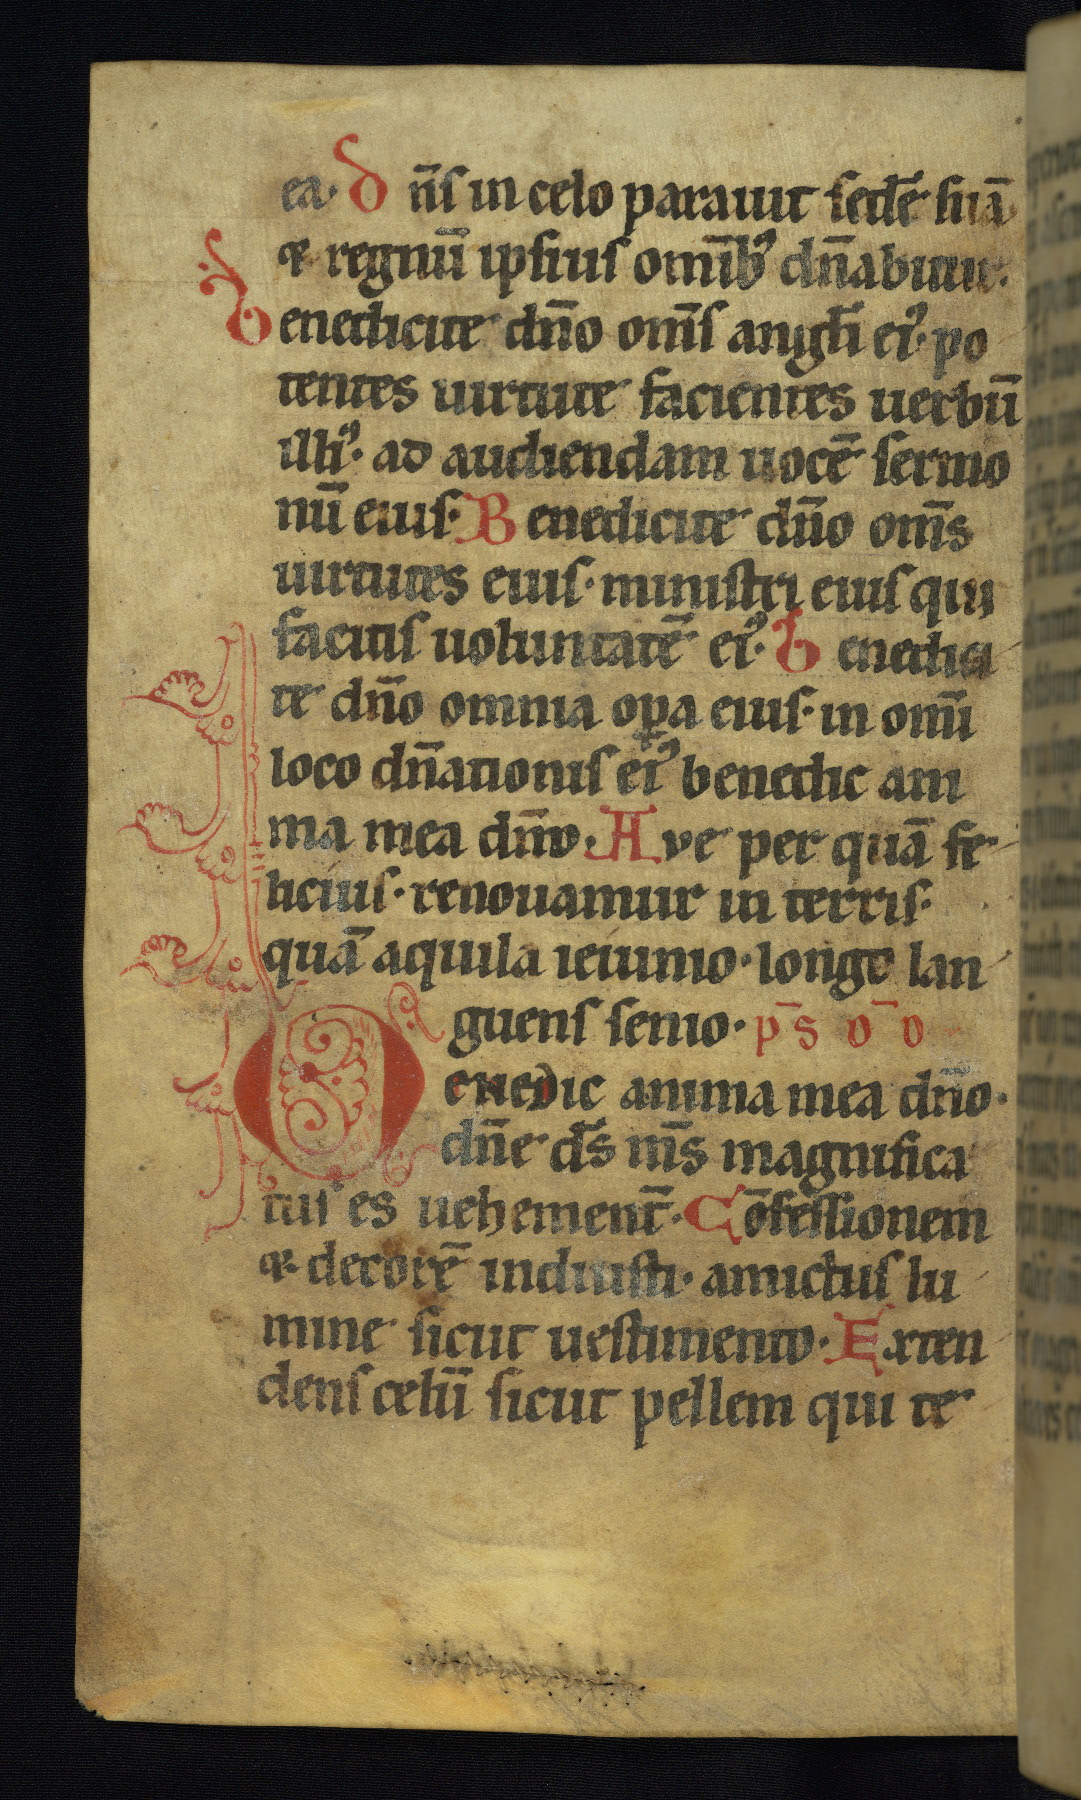 ea. D n̄s in celo parauit sedē suā
⁊ regnū ipsius omīb⁹ dn̄abitur.
Benedicite dn̄o om̄s angl̄i ei⁹. po
tentes uirtute facientes uerbū
illi⁹. ad audiendam uocē sermo
nū eius. Benedicite dn̄o om̄s
uirtutes eius. ministri eius qui
facitis uoluntatē ei⁹. Benedici
te dn̄o omnia oꝑa eius. in om̄i
loco dn̄ationis ei⁹ benedic ani
ma mea dn̄o. Ave per quā fe
licius. renouamur in terris.
quā aquila ieiunio. longo lan
guens senio. p̄s v̄ v
Benedic anima mea dn̄o.
dn̄e ds̄ ms̄ magnifica
tus es uehement̄. Cōfessionem
⁊ decorē induisti. amictus lu
mine sicut uestimento. Exten
dens celū sicut pellem qui te